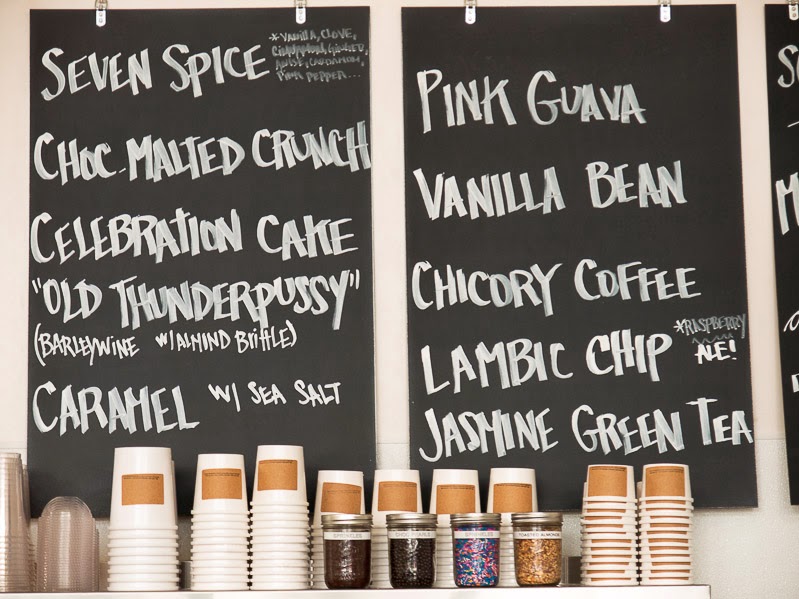 SEVEN SPICE
*VANILLA, CLOVE,
CINNAMON, GINGER,
ANISE, CARDAMOM,
PINK PEPPER...
CHOC. MALTED CRUNCH
CELEBRATION CAKE
"OLD THUNDERPUSSY"
(BARLEYWINE W/ ALMOND BRITTLE)
CARAMEL W/ SEA SALT
PINK GUAVA
VANILLA BEAN
CHICORY COFFEE
LAMBIC CHIP
*RASPBERRY
ALE!
JASMINE GREEN TEA
SPRINKLES
TOASTED ALMONDS